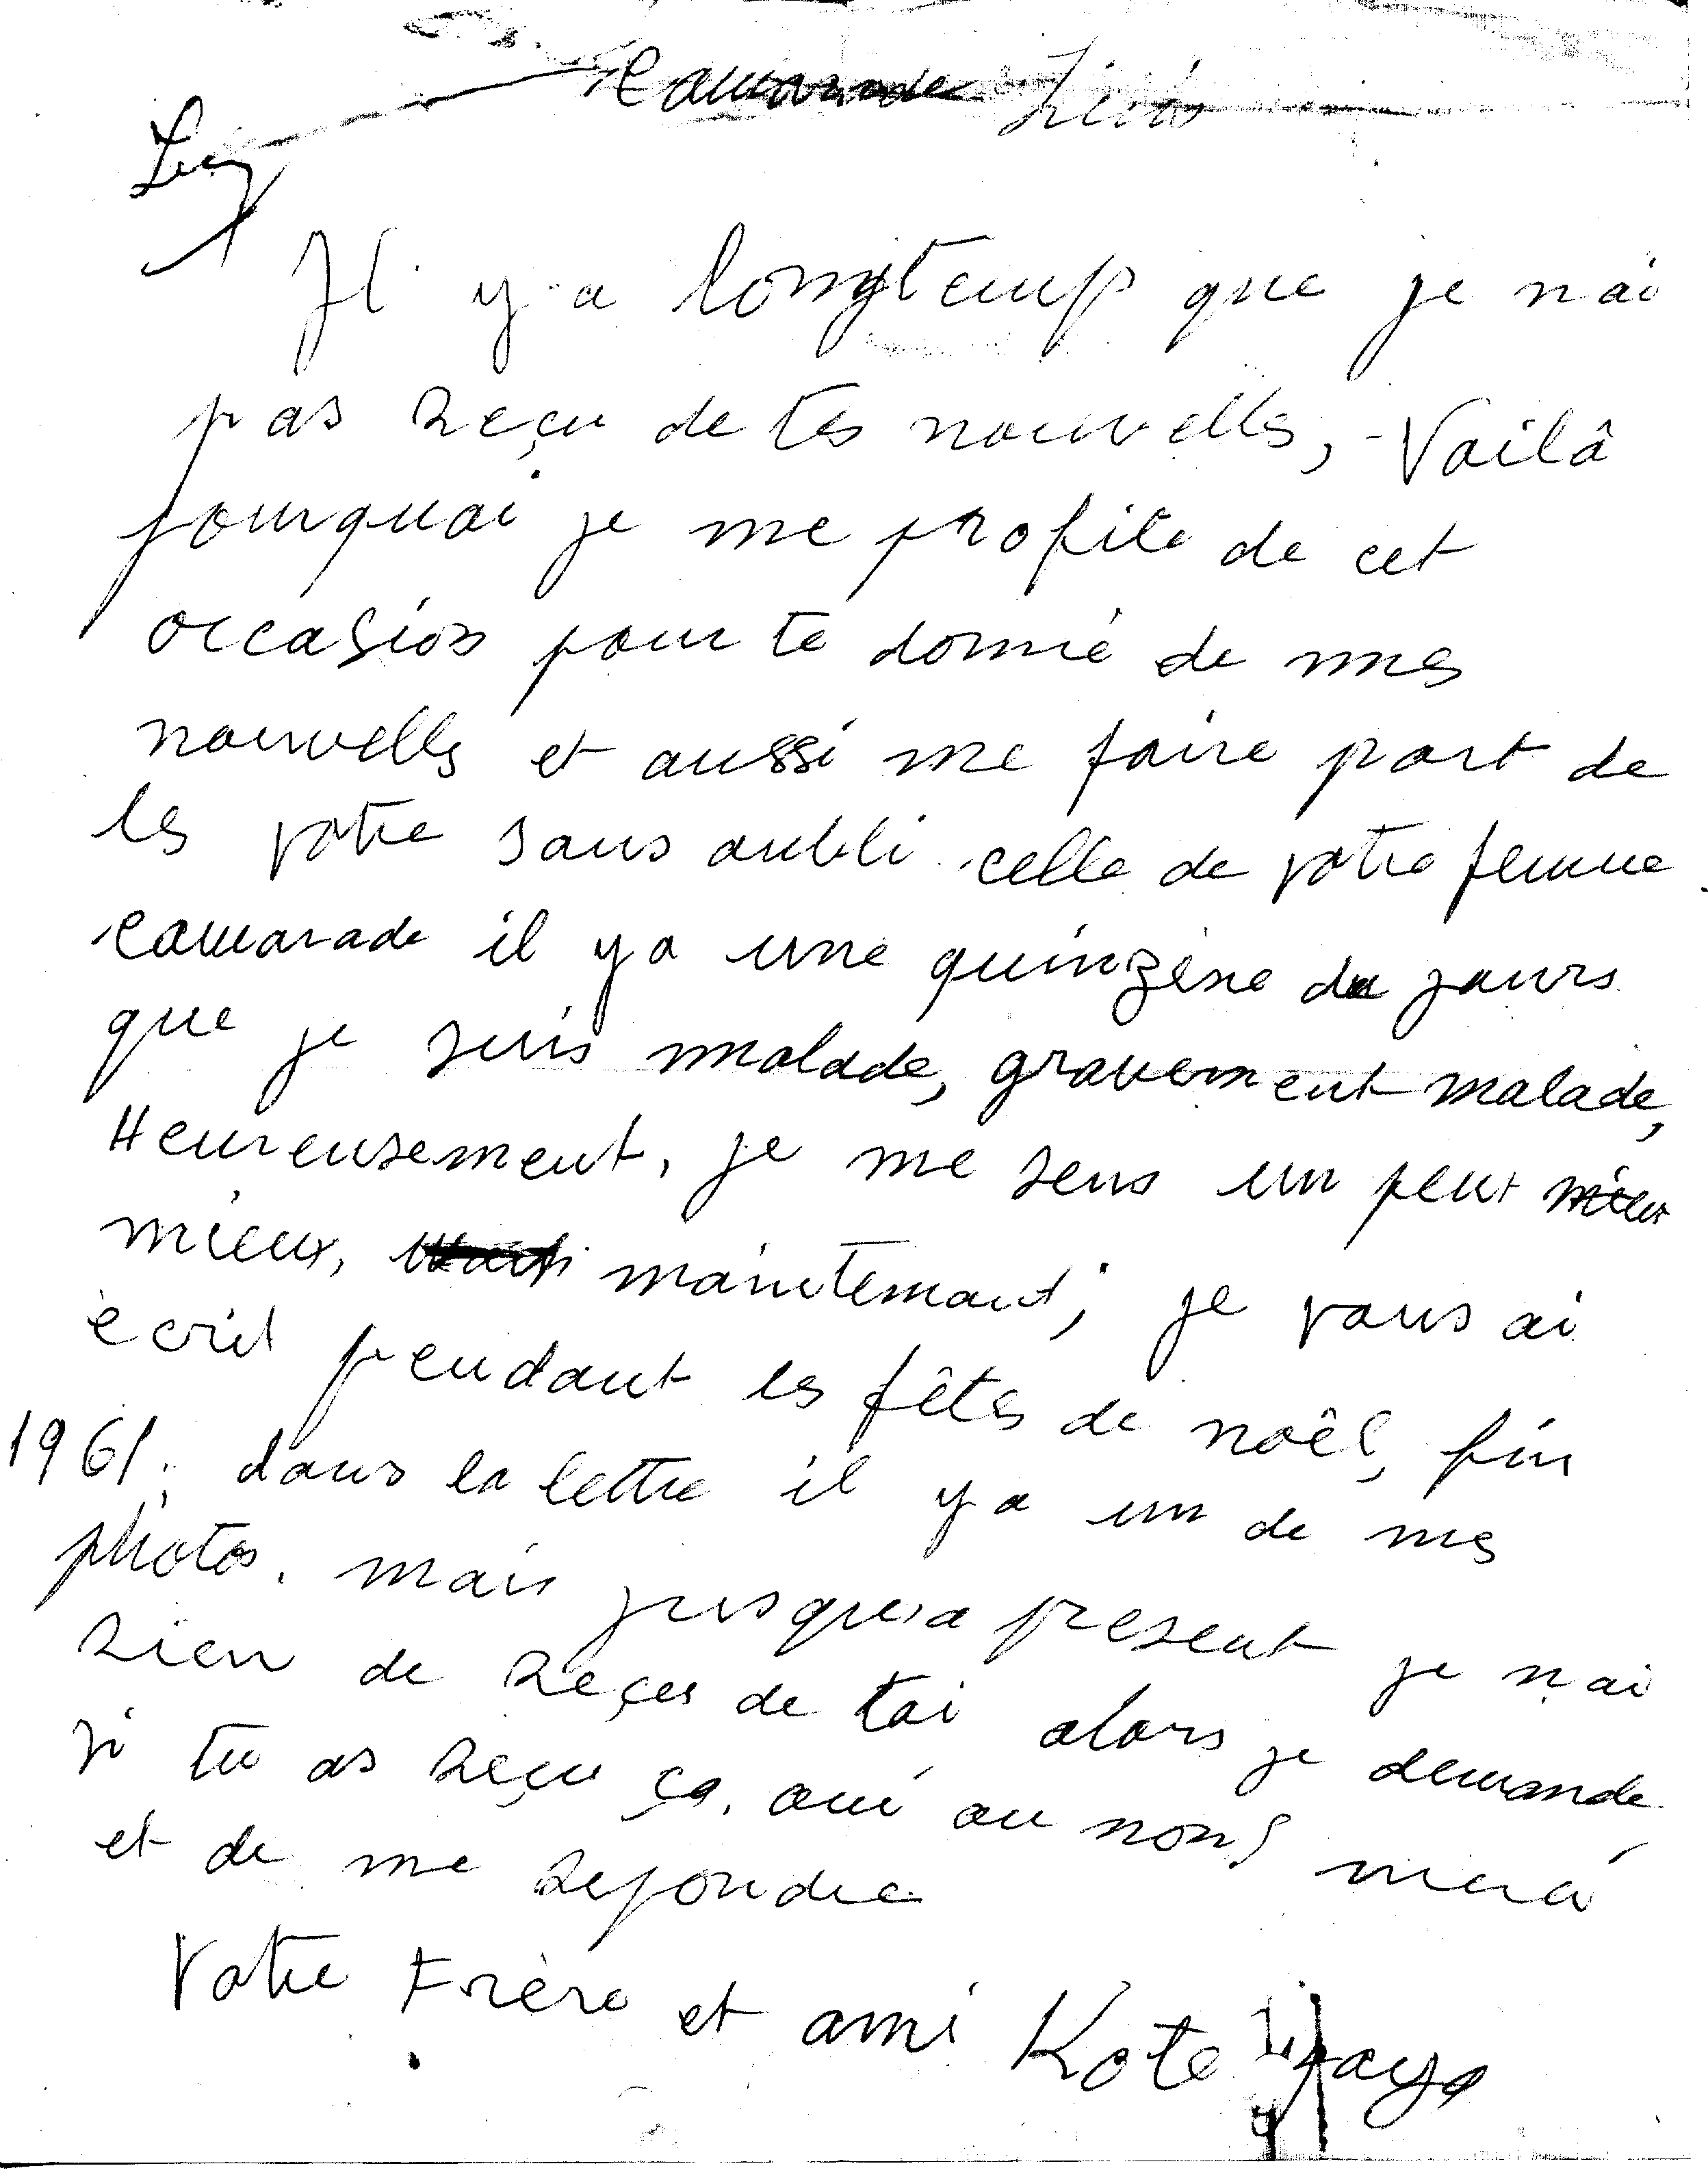 Camarade
Il y a longtemp que je n'ai
pas reçu de tes nouvelles, - Voilâ
pourquoi je me profite de cet
occasion pour te donné de mes
nouvelles et aussi me faire part de
les votre sans oubli celle de votre femme.
Camarade il y a une quinzène de jours
que je suis malade, gravement malade,
Heureusement, je me sens un peux mieux
mieux, maintemant, je vous ai
ecrit pendant les fêtes de noêl, fin
1961; dans la lettre il y a un de mes
photos. mais jusqu'a present je n'ai
rien de reçes de toi alors je demande
si tu as reçu ça. oui ou non?
et de me repondre
Votre Frère et ami Kote